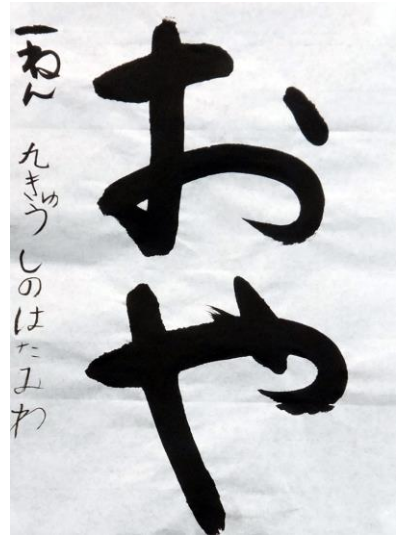 おや
一ねん 九きゅう しのはたみわ